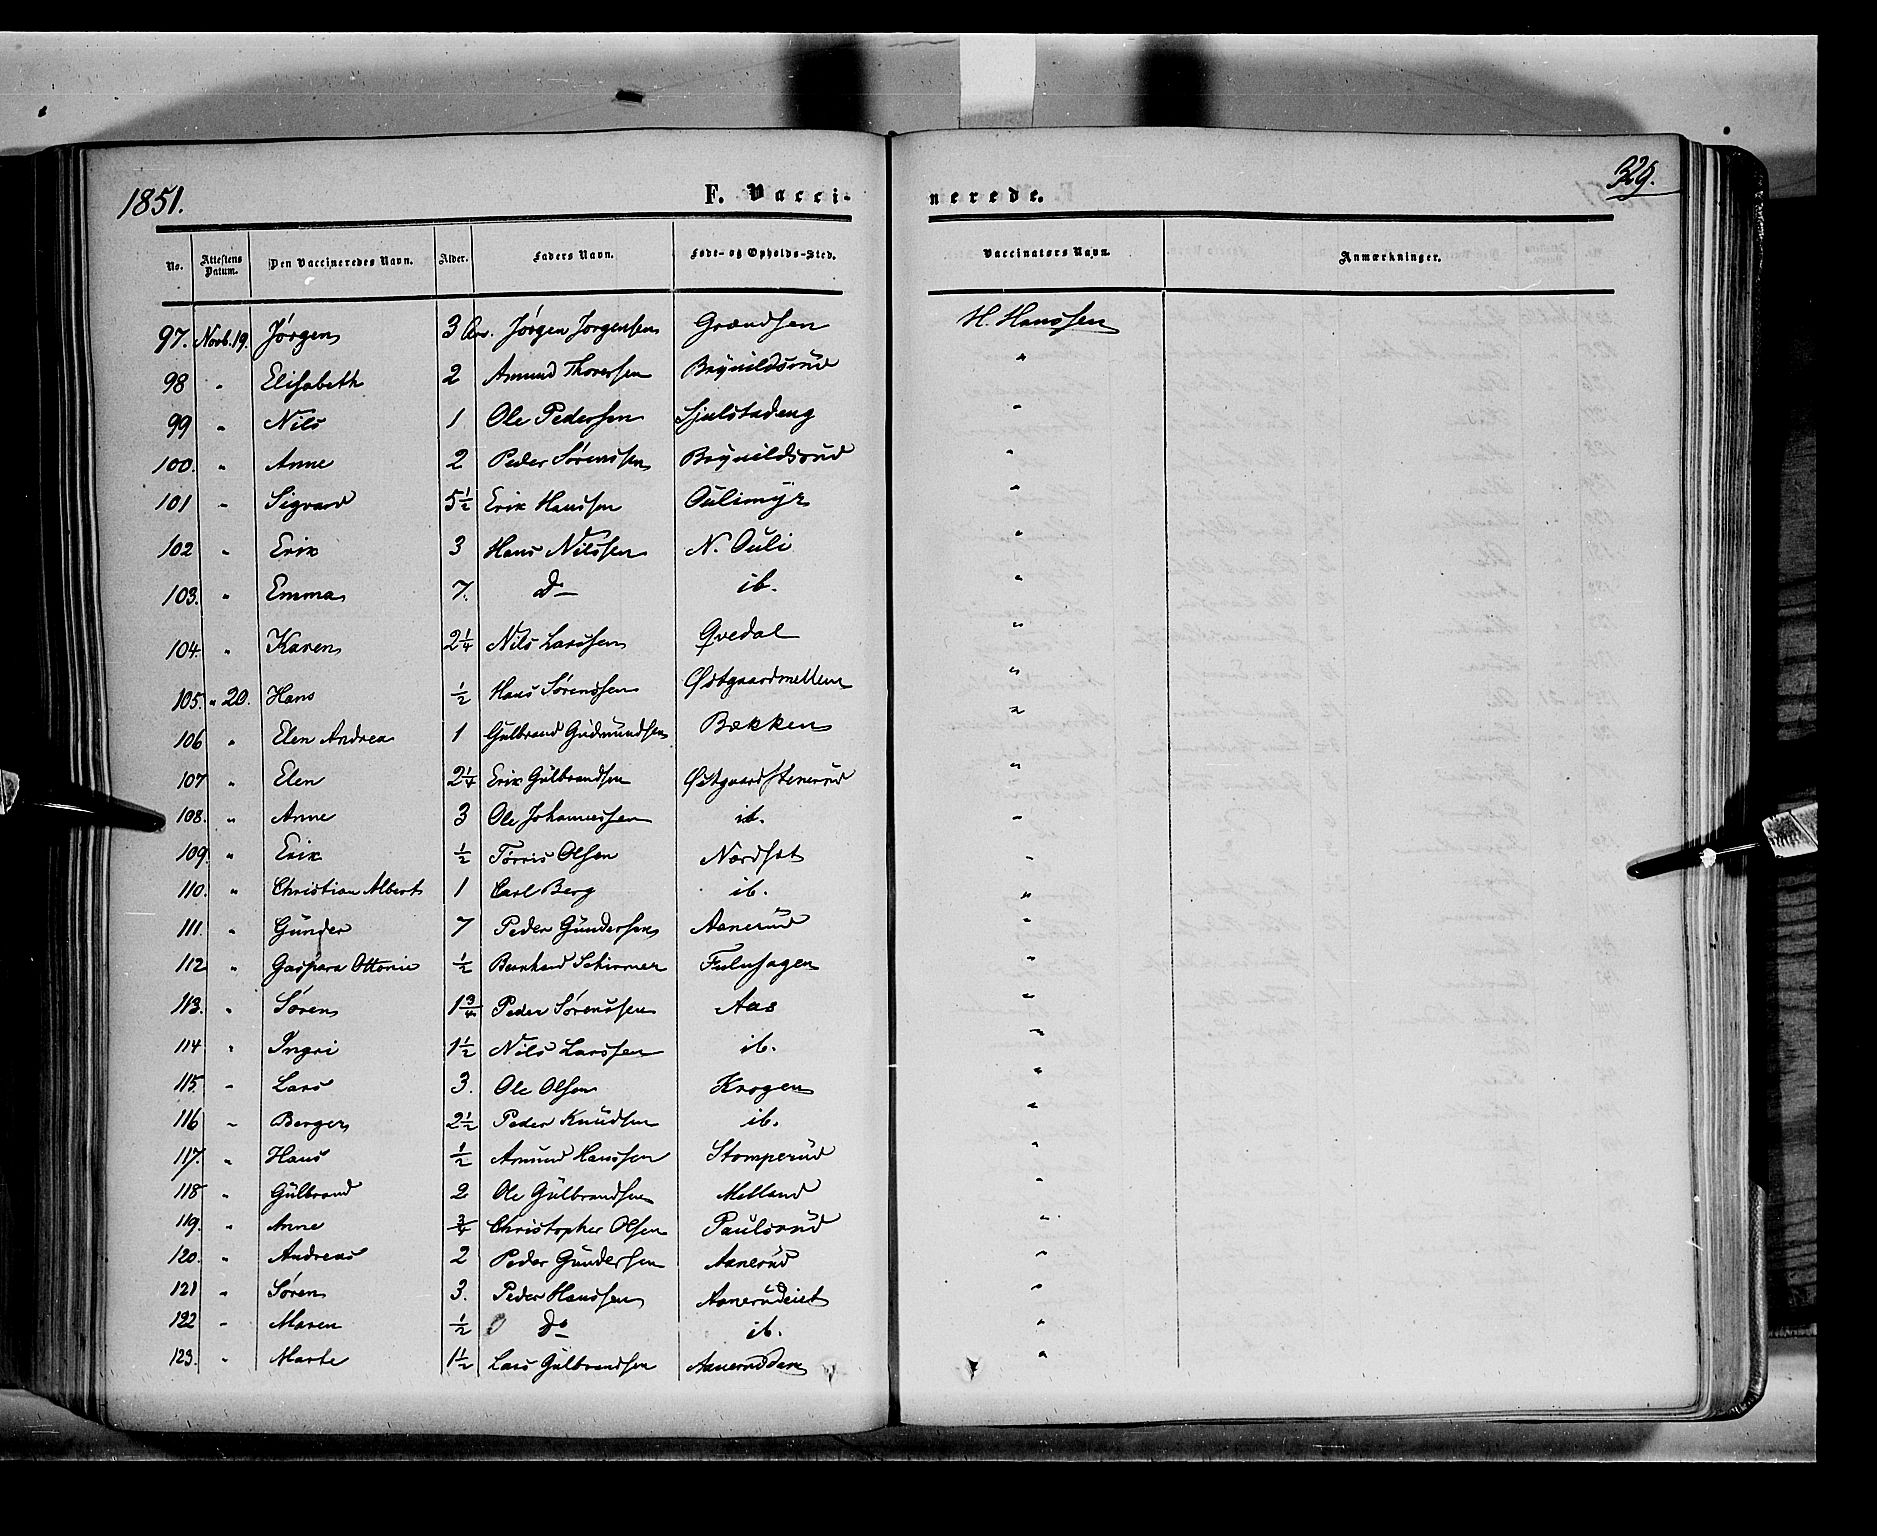 1851.
F. Vacci-
nerede.
329.
No. Attestens Datum. Den Vaccineredes Navn. Alder. Faders Navn. Føde- og Opholds-Sted. Vaccinators Navn. Anmærkninger.
97. Novb. 19. Jörgen 3 Aar. Jörgen Jorgensen H. Hanssen
98 " Elisabeth 2 Amund Thoressen Brynildsrud "
99 " Nils 1 Ole Pedersen Sjulstadeng "
100. " Anne 2 Peder Sørenssen Brynildsrud "
101 " Sigvard 5½ Erik Hanssen Oulimyr "
102 " Erik 3 Hans Nilssen N. Ouli "
103. " Emma 7. Do ib. "
104. " Karen 2¼ Nils Larssen Qvedal "
105. " 20. Hans ½ Hans Sørenssen Østgaardmellem "
106 " Elen Andrea 1 Gulbrand Gudmundsen Bækken "
107 " Elen 2¼ Erik Gulbrandsen Østgaardstenerud "
108. " Anne 3 Ole Johannessen ib. "
109. " Erik ½ Törris Olsen Nordset "
110. " Christian Albert 1 Carl Berg ib. "
111. " Gunder 7 Peder Gundersen Aanerud "
112 " Gaspara Ottonie ½ Bernhard Schirmer Fuluhagen "
113. " Sören 1¾ Peder Sørenssen Aas "
114 " Ingri 1½ Nils Larssen ib. "
115. " Lars 3. Ole Olsen Krogen "
116 " Berger 2½ Peder Knudsen ib. "
117. " Hans ½ Amund Hanssen Stomperud "
118 " Gulbrand 2 Ole Gulbrandsen Melland "
119. " Anne ¾ Christopher Olsen Paulsrud "
120. " Andreas 2 Peder Gundersen Aanerud "
121 " Sören 3. Peder Hanssen Aanerudeiet "
122 " Maren ½ Do ib. "
123. " Marte 1½ Lars Gulbrandsen "